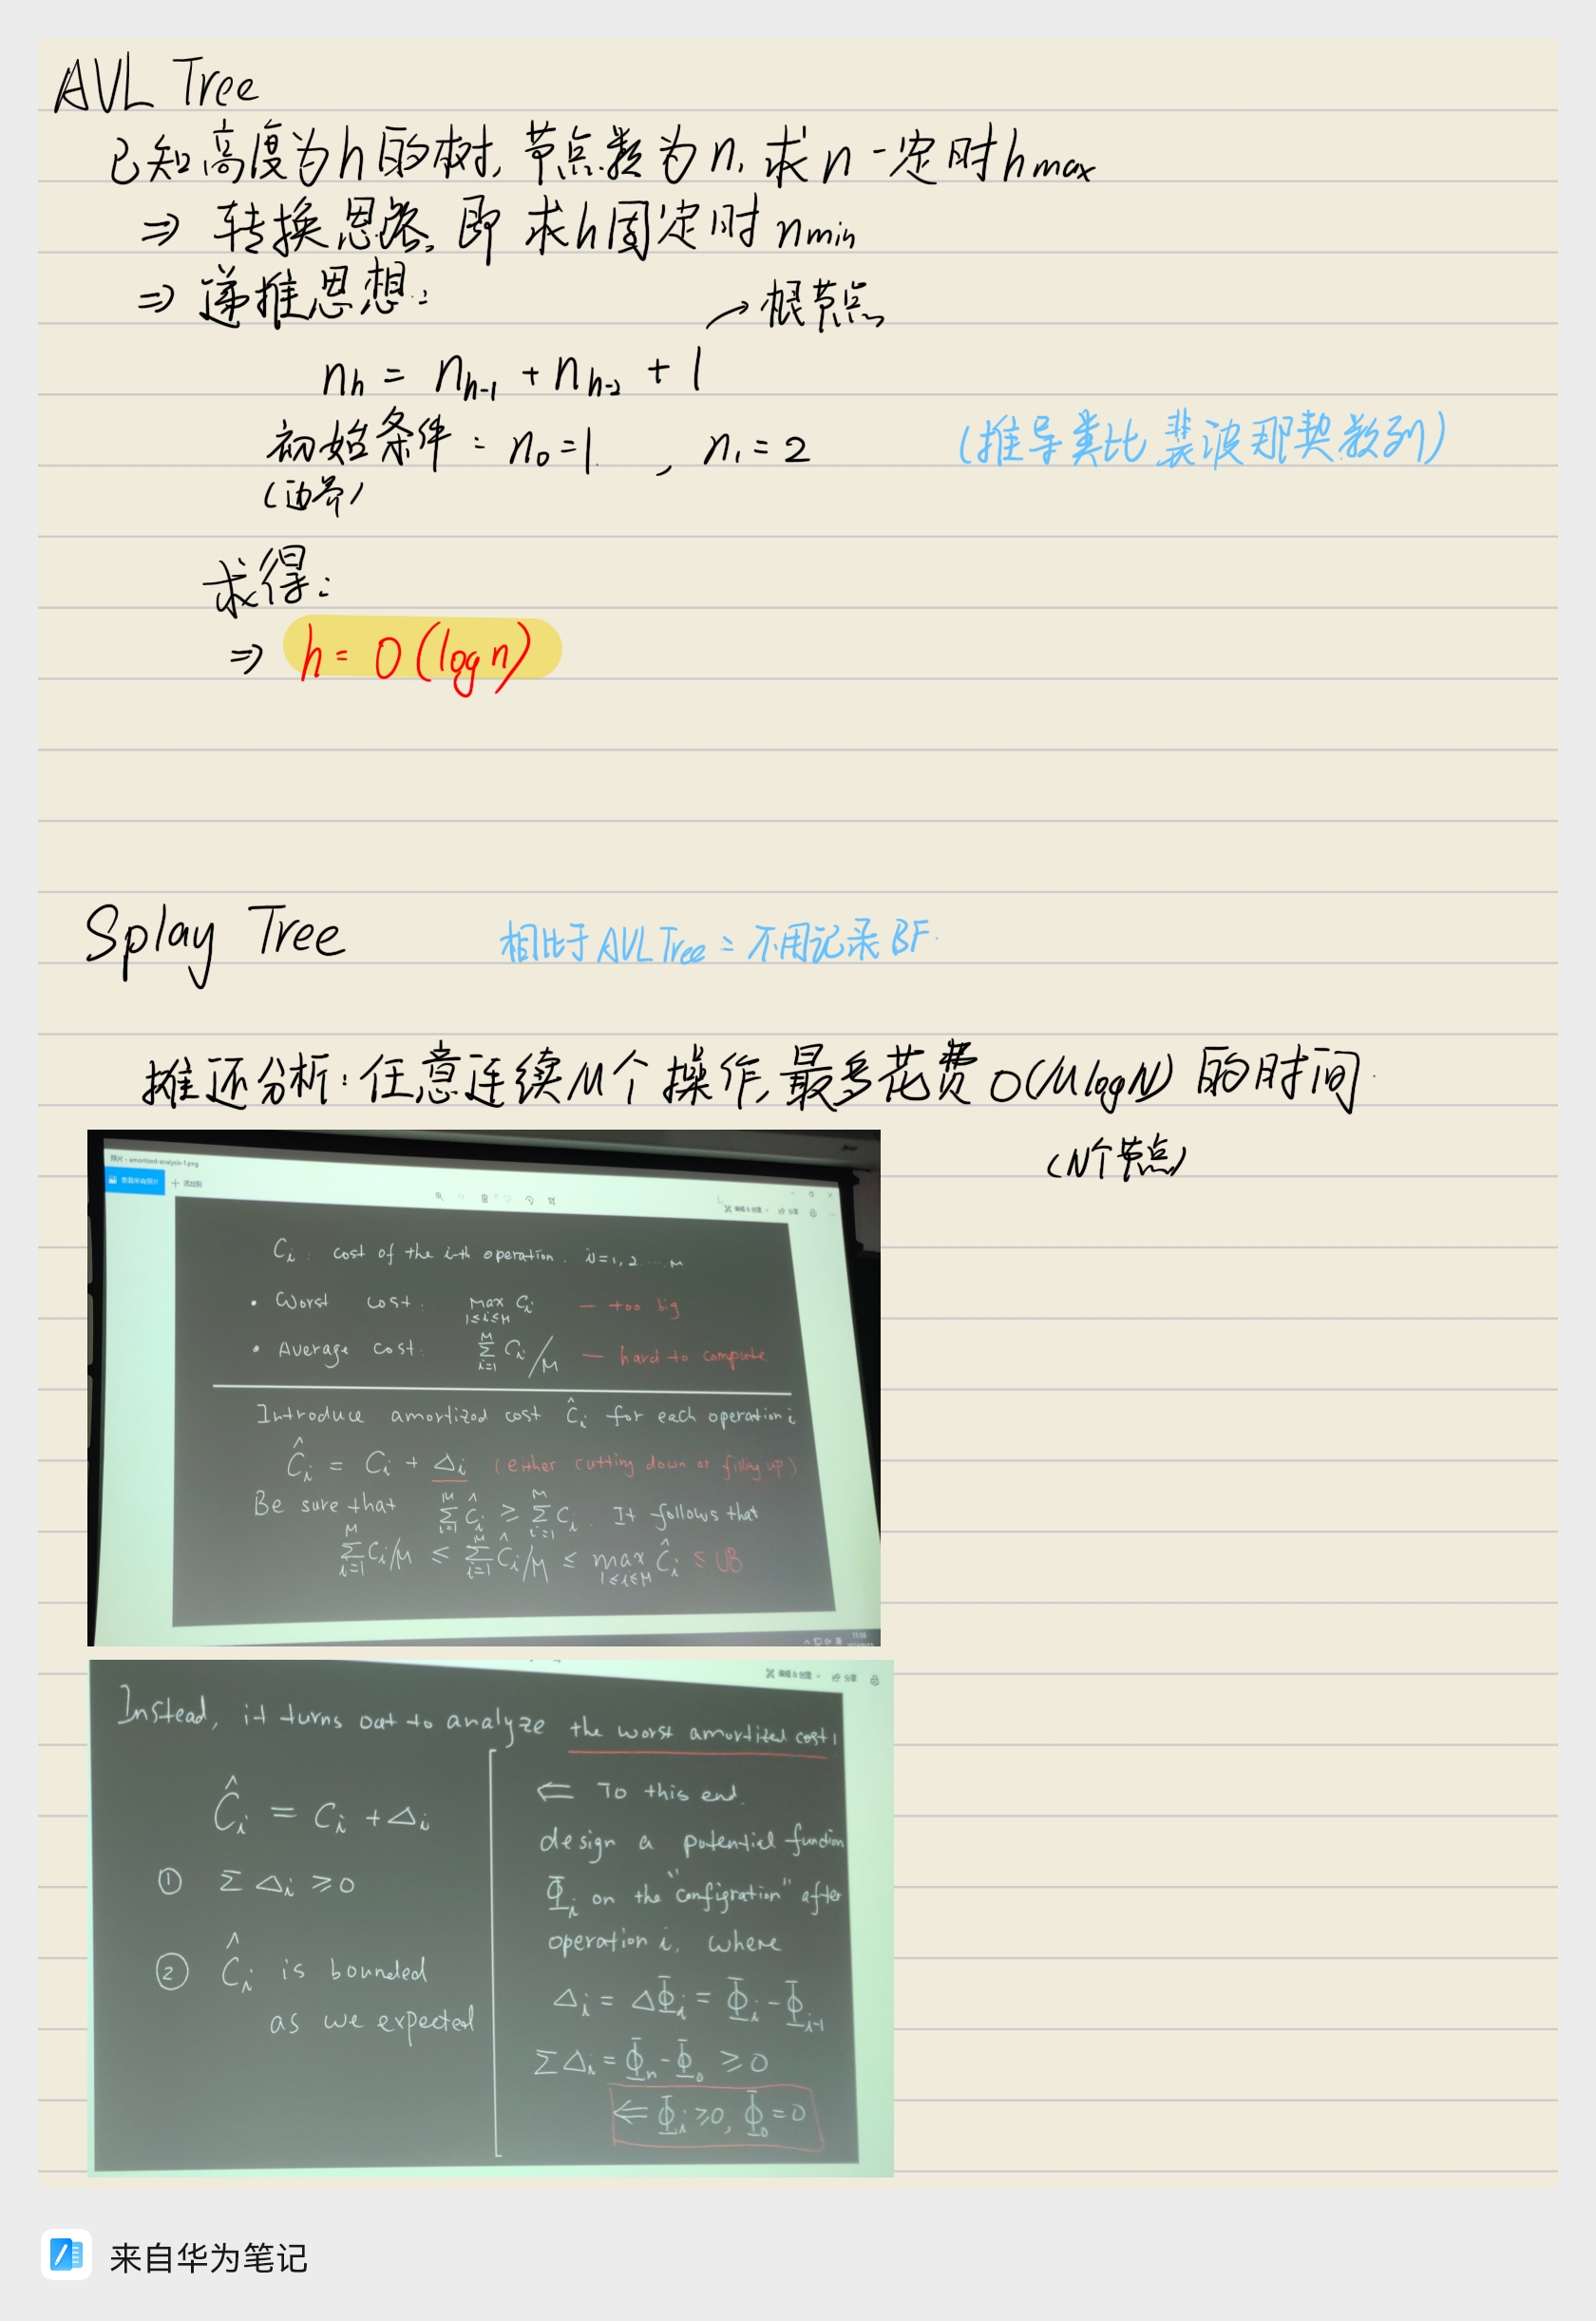 AVL Tree
已知高度为h的树,节点数为n,求n一定时hmax
⇒ 转换思路,即求h固定时nmin
⇒ 递推思想:
→根节点
nh = nh-1 + nh-2 + 1
初始条件: n0=1 , n1=2
(推导类比斐波那契数列)
(边界)
求得:
⇒ h= O(log n)
Splay Tree
相比于AVL Tree: 不用记录BF.
摊还分析:任意连续M个操作,最多花费O(MlogN)的时间.
(N个节点)
照片 - amortized-analysis-1.png
查看所有照片 + 添加到
编辑&创建 分享
Ci: cost of the i-th operation. i=1,2....M
• Worst cost: max 1≤i≤M Ci — too big
• Average cost: M Σ i=1 Ci/M — hard to compute
Introduce amortized cost Ĉi for each operation i
Ĉi = Ci + Δi (either cutting down or filling up)
Be sure that M Σ i=1 Ĉi ≥ M Σ i=1 Ci. It follows that
M Σ i=1 Ci/M ≤ M Σ i=1 Ĉi/M ≤ max 1≤i≤M Ĉi ≤ UB
11:56
编辑&创建 分享
Instead, it turns out to analyze the worst amortized cost!
Ĉi = Ci + Δi
① Σ Δi ≥ 0
② Ĉi is bounded
as we expected
⇐ To this end.
design a potential function
Φi on the "configration" after
operation i, where
Δi = ΔΦi = Φi - Φi-1
ΣΔi = Φn - Φ0 ≥ 0
⇐ Φi ≥ 0, Φ0 = 0
来自华为笔记